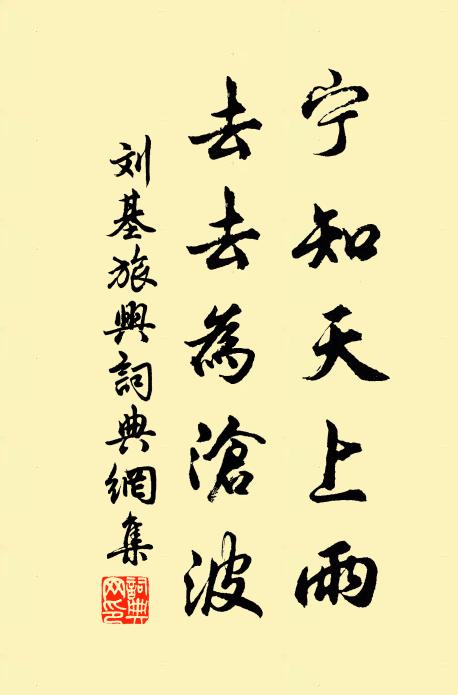 宁知天上雨
去去為滄波
刘基旅興詞典網集
詞典
网印